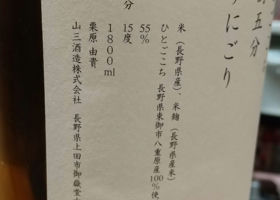 五分
にごり
分
米（長野県産）、米麹（長野県産米）
ひとごこち 長野県東御市八重原産100%使
55%
15度
1800ml
栗原由貴
山三酒造株式会社 長野県上田市御嶽堂